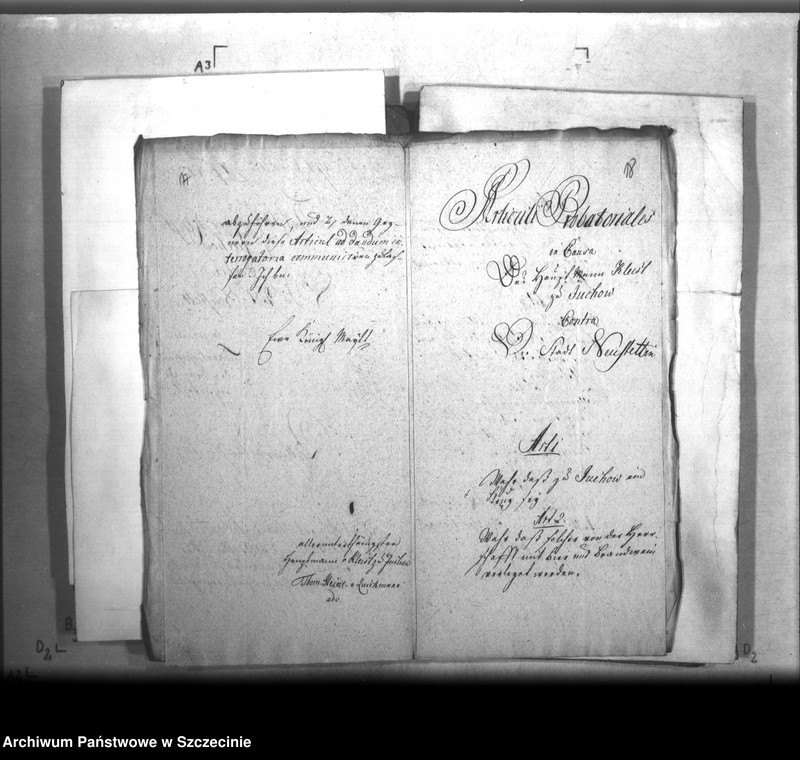 A3
abzuführen, und 2) denen Geg-
nern diese Articul ad dandum in-
terrogatoria communiciren zu las-
sen. Ich bin
Ew. Königl. Maytt
allerunterthänigster
Hauptmann v Kleist zu Juchow
adv.
18
Articuli Probatoriales
in Causa
Des Haupt Mann Kleist
zu Juchow
Contra
Die Stadt Neustettin
Art 1
Wahr daß zu Juchow ein
Krug sey
Art 2.
Wahr daß solcher von der Herr-
schafft mit Bier und Brandwein
verleget werden.
D2 L
D2
A2 L
Archiwum Państwowe w Szczecinie